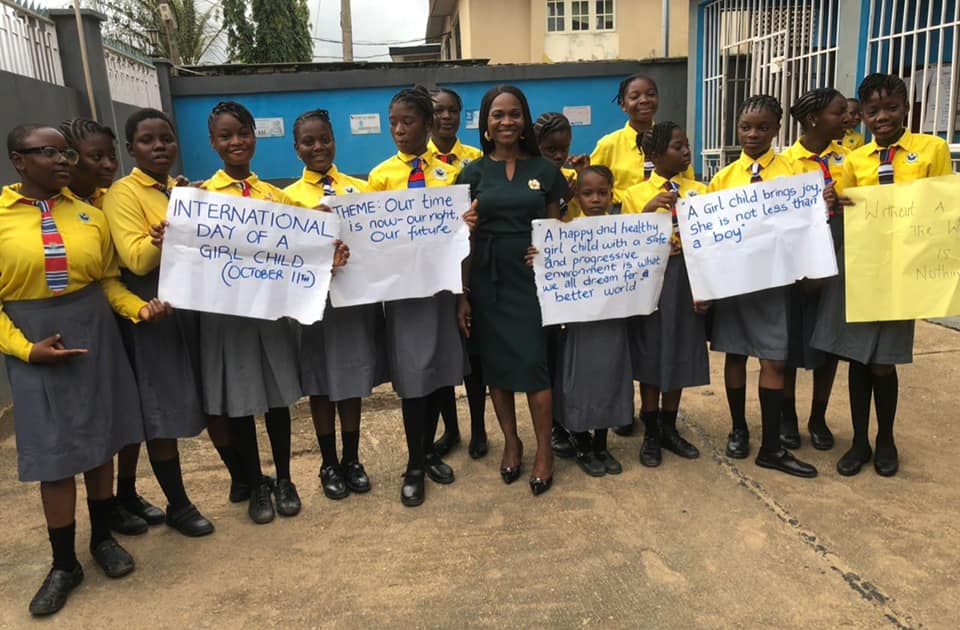 INTERNATIONAL
DAY OF A
GIRL CHILD
(OCTOBER 11TH)
THEME: Our time
is now-our right,
Our future.
A happy and healthy
girl child with a safe
and progressive
environment is what
we all dream for a
better world
"A Girl child brings joy,
She is not less than
a boy"
Without A
The W
is
Nothin